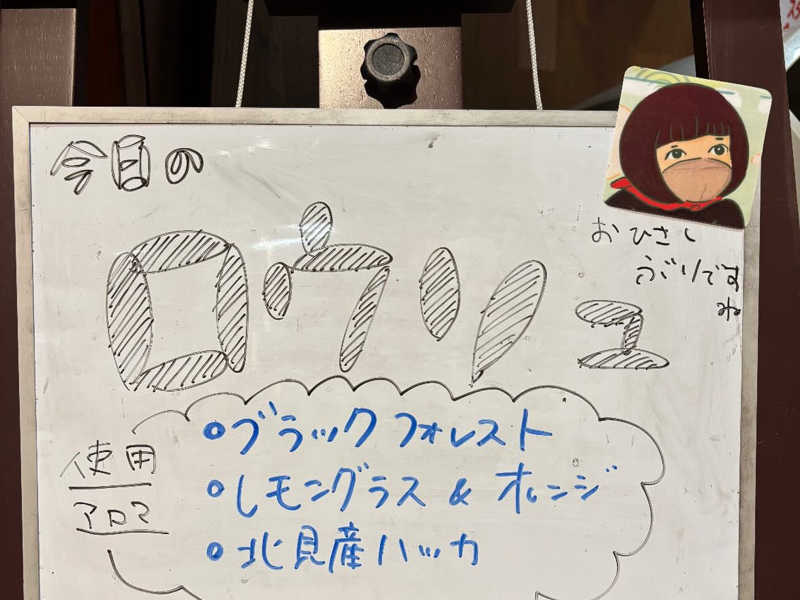 今日の
ロウリュ
おひさし
ぶりです
ね
使用
アロマ
・ブラックフォレスト
・レモングラス & オレンジ
・北見産ハッカ